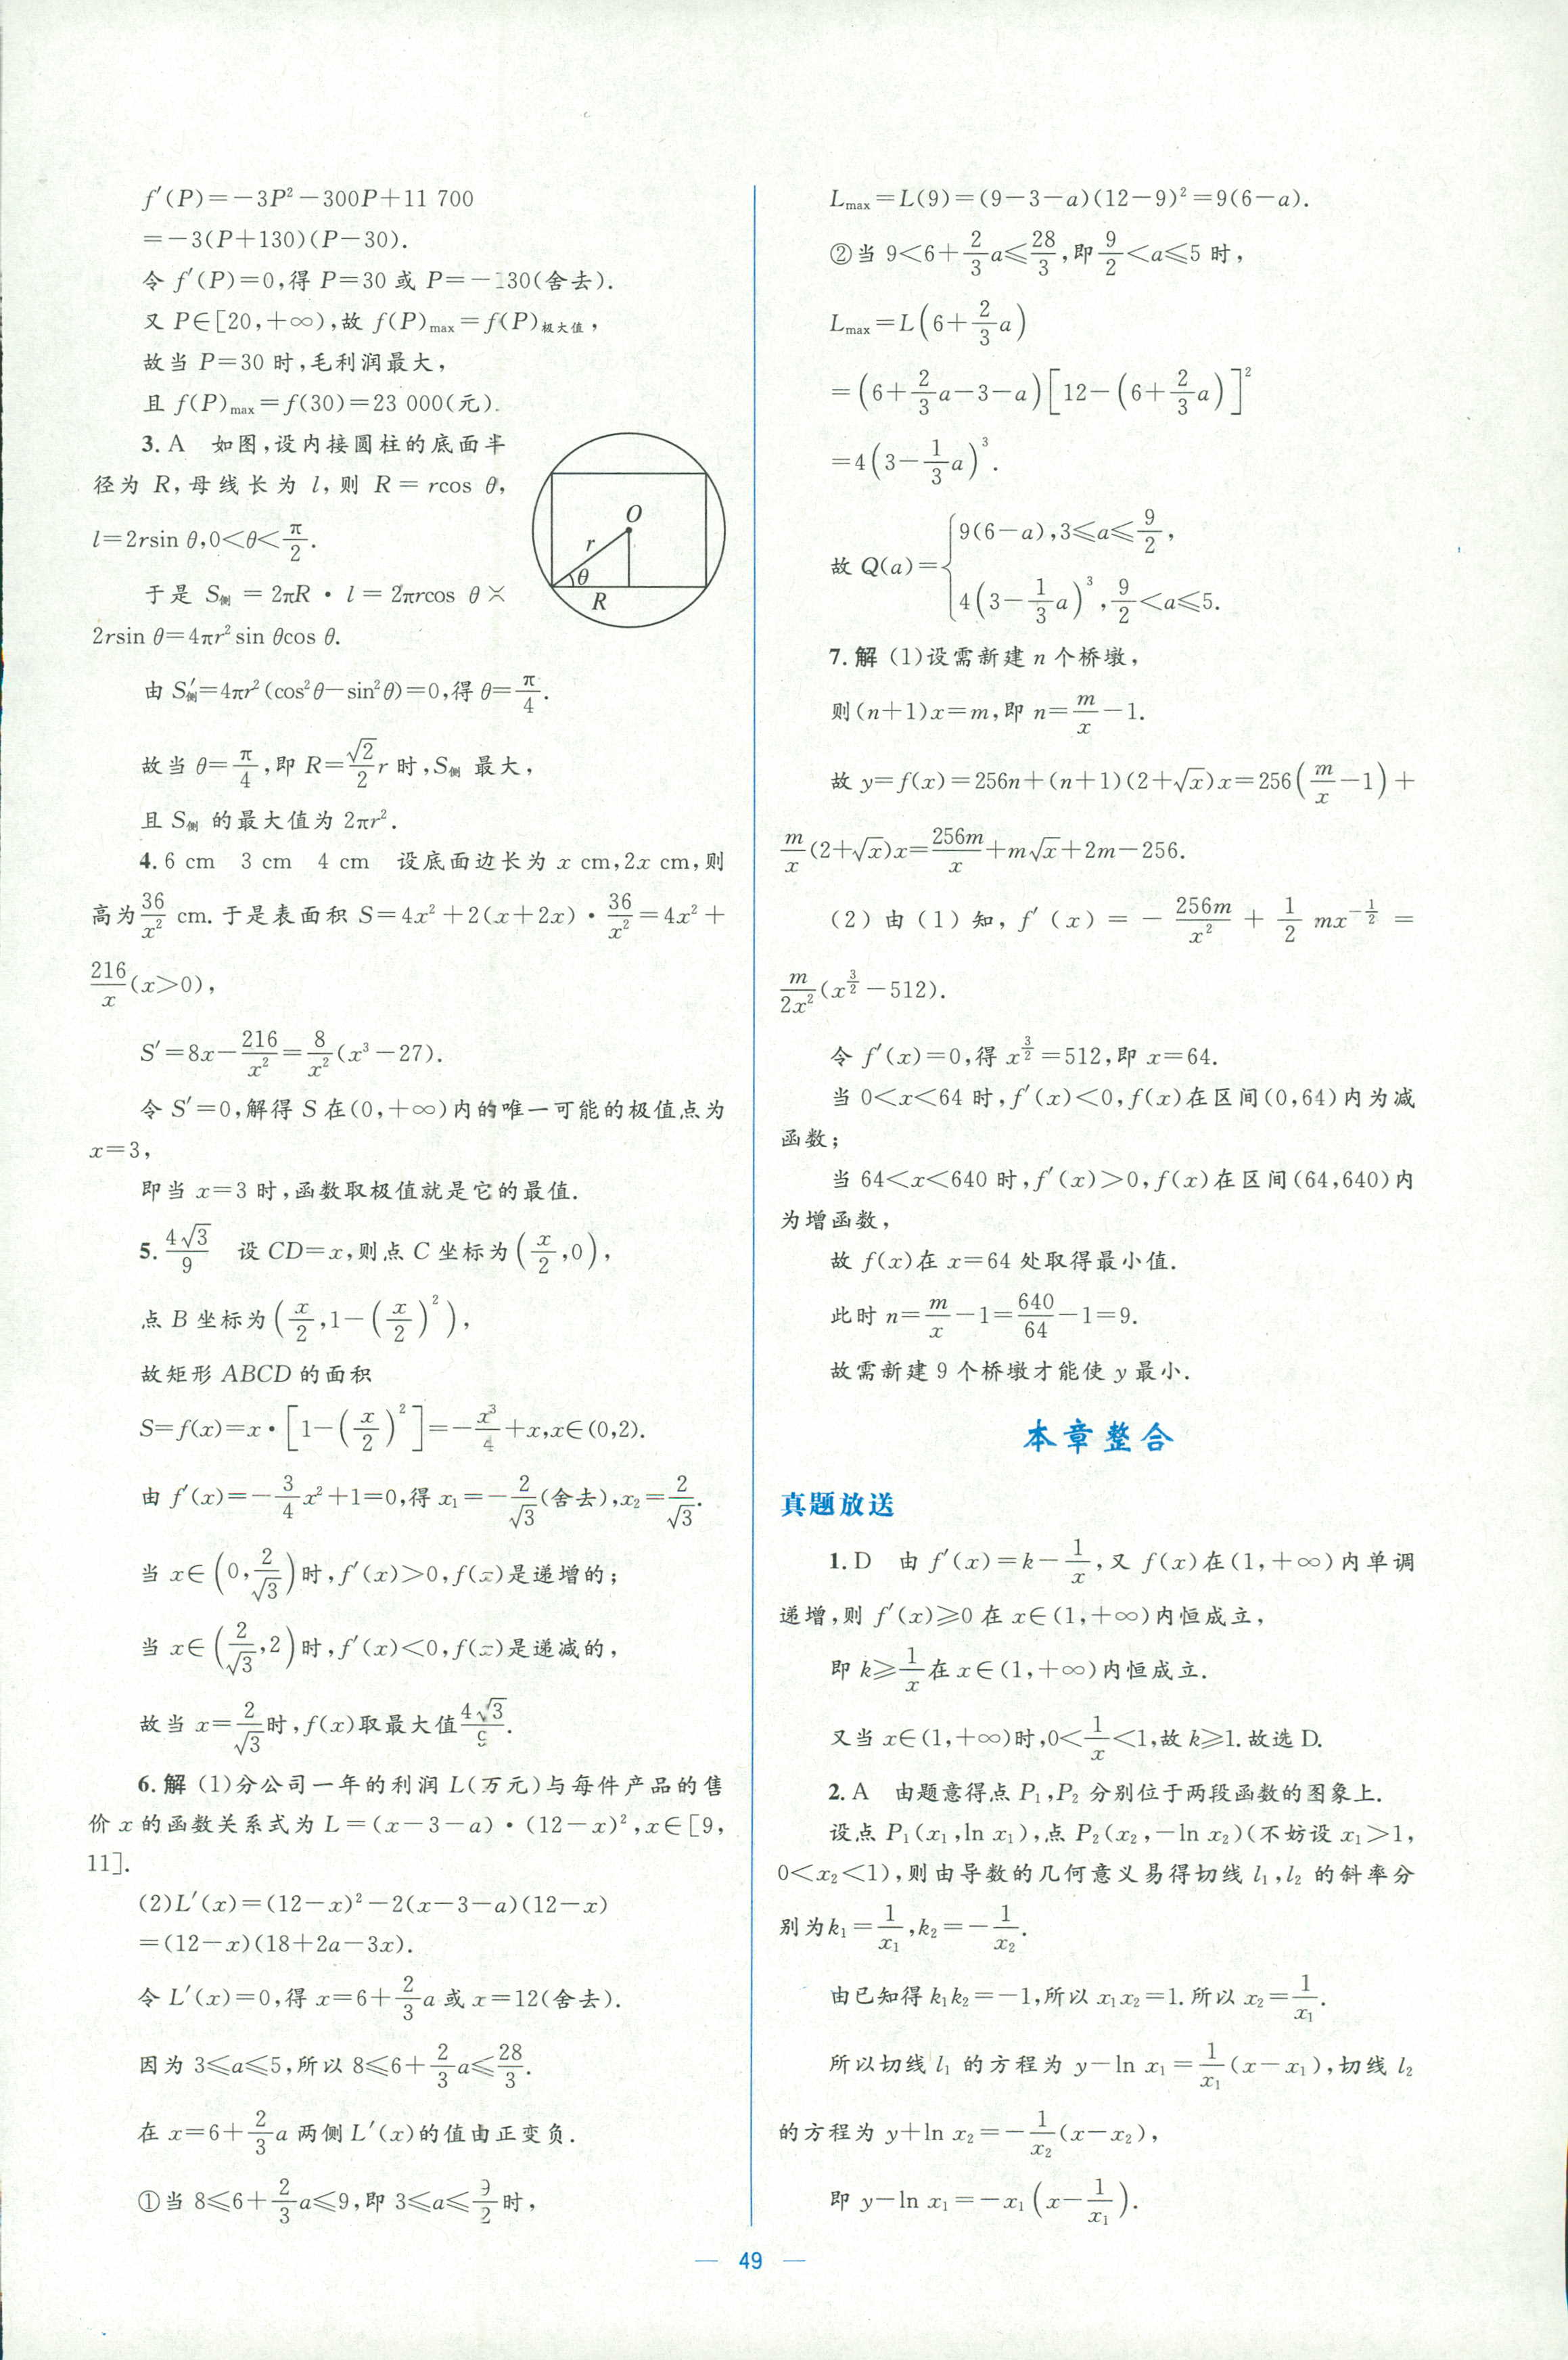 f′(P)=-3P²-300P+11 700
=-3(P+130)(P-30).
令 f′(P)=0,得 P=30 或 P=-130(舍去).
又 P∈[20,+∞),故 f(P)max=f(P)极大值,
故当 P=30 时,毛利润最大,
且 f(P)max=f(30)=23 000(元).
3.A 如图,设内接圆柱的底面半
径为 R,母线长为 l,则 R=rcos θ,
l=2rsin θ,0<θ<π/2.
于是 S侧=2πR·l=2πrcos θ×
2rsin θ=4πr²sin θcos θ.
O
r
θ
R
由 S′侧=4πr²(cos²θ-sin²θ)=0,得 θ=π/4.
故当 θ=π/4,即 R=(√2/2)r 时,S侧 最大,
且 S侧 的最大值为 2πr².
4.6 cm 3 cm 4 cm 设底面边长为 x cm,2x cm,则
高为 36/x² cm.于是表面积 S=4x²+2(x+2x)·36/x²=4x²+
216/x(x>0),
S′=8x-216/x²=8/x²(x³-27).
令 S′=0,解得 S 在(0,+∞)内的唯一可能的极值点为
x=3,
即当 x=3 时,函数取极值就是它的最值.
5.4√3/9 设 CD=x,则点 C 坐标为(x/2,0),
点 B 坐标为(x/2,1-(x/2)²),
故矩形 ABCD 的面积
S=f(x)=x·[1-(x/2)²]=-x³/4+x,x∈(0,2).
由 f′(x)=-3/4x²+1=0,得 x₁=-2/√3(舍去),x₂=2/√3.
当 x∈(0,2/√3)时,f′(x)>0,f(x)是递增的;
当 x∈(2/√3,2)时,f′(x)<0,f(x)是递减的,
故当 x=2/√3时,f(x)取最大值4√3/9.
6.解 (1)分公司一年的利润 L(万元)与每件产品的售
价 x 的函数关系式为 L=(x-3-a)·(12-x)²,x∈[9,
11].
(2)L′(x)=(12-x)²-2(x-3-a)(12-x)
=(12-x)(18+2a-3x).
令 L′(x)=0,得 x=6+2/3a 或 x=12(舍去).
因为 3≤a≤5,所以 8≤6+2/3a≤28/3.
在 x=6+2/3a 两侧 L′(x)的值由正变负.
①当 8≤6+2/3a≤9,即 3≤a≤9/2时,
Lmax=L(9)=(9-3-a)(12-9)²=9(6-a).
②当 9<6+2/3a≤28/3,即9/2<a≤5 时,
Lmax=L(6+2/3a)
=(6+2/3a-3-a)[12-(6+2/3a)]²
=4(3-1/3a)³.
故 Q(a)={9(6-a),3≤a≤9/2,
4(3-1/3a)³,9/2<a≤5.
7.解 (1)设需新建 n 个桥墩,
则(n+1)x=m,即 n=m/x-1.
故 y=f(x)=256n+(n+1)(2+√x)x=256(m/x-1)+
m/x(2+√x)x=256m/x+m√x+2m-256.
(2)由(1)知,f′(x)=-256m/x²+1/2mx^(-1/2)=
m/2x²(x^(3/2)-512).
令 f′(x)=0,得 x^(3/2)=512,即 x=64.
当 0<x<64 时,f′(x)<0,f(x)在区间(0,64)内为减
函数;
当 64<x<640 时,f′(x)>0,f(x)在区间(64,640)内
为增函数,
故 f(x)在 x=64 处取得最小值.
此时 n=m/x-1=640/64-1=9.
故需新建 9 个桥墩才能使 y 最小.
本章整合
真题放送
1.D 由 f′(x)=k-1/x,又 f(x)在(1,+∞)内单调
递增,则 f′(x)≥0 在 x∈(1,+∞)内恒成立,
即 k≥1/x在 x∈(1,+∞)内恒成立.
又当 x∈(1,+∞)时,0<1/x<1,故 k≥1.故选 D.
2.A 由题意得点 P₁,P₂ 分别位于两段函数的图象上.
设点 P₁(x₁,ln x₁),点 P₂(x₂,-ln x₂)(不妨设 x₁>1,
0<x₂<1),则由导数的几何意义易得切线 l₁,l₂ 的斜率分
别为k₁=1/x₁,k₂=-1/x₂.
由已知得 k₁k₂=-1,所以 x₁x₂=1.所以 x₂=1/x₁.
所以切线 l₁ 的方程为 y-ln x₁=1/x₁(x-x₁),切线 l₂
的方程为 y+ln x₂=-1/x₂(x-x₂),
即 y-ln x₁=-x₁(x-1/x₁).
— 49 —